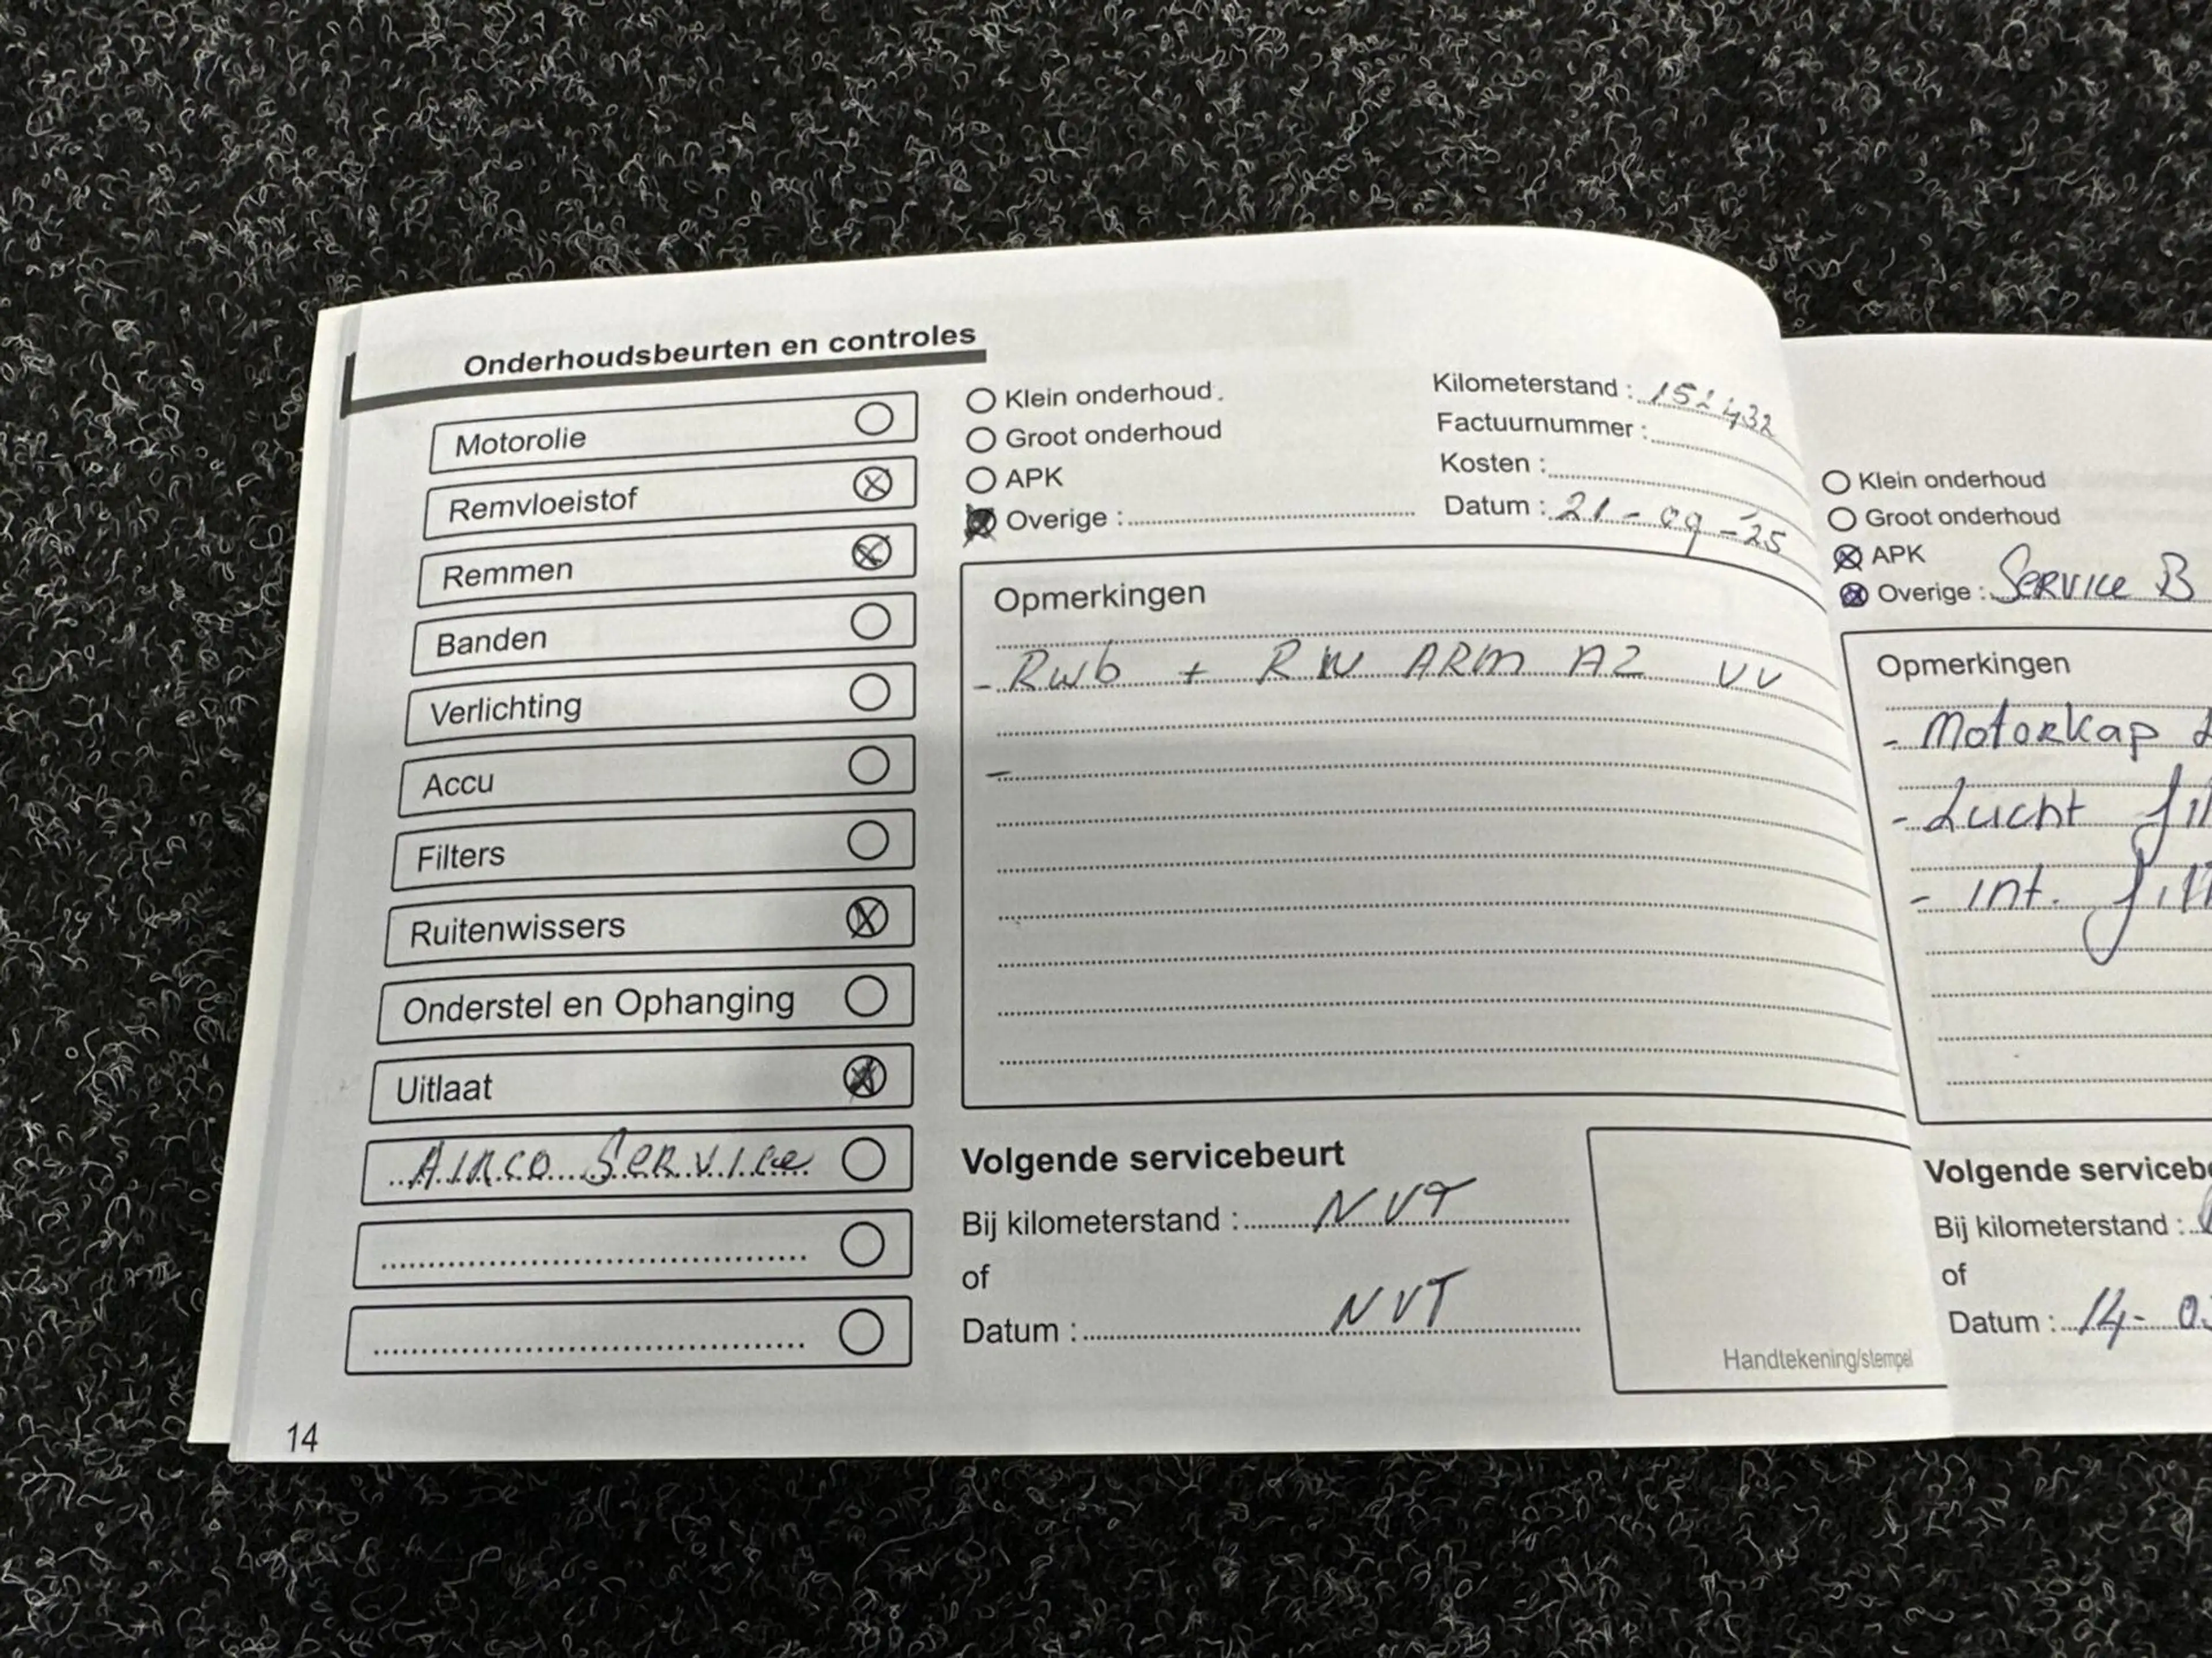 Onderhoudsbeurten en controles
Motorolie
Remvloeistof
Remmen
Banden
Verlichting
Accu
Filters
Ruitenwissers
Onderstel en Ophanging
Uitlaat
Airco Service
14
Klein onderhoud
Groot onderhoud
APK
Overige :
Kilometerstand : 152432
Factuurnummer :
Kosten :
Datum : 21-09-'25
Opmerkingen
- Rwb + RW ARM A2 VV
-
Volgende servicebeurt
Bij kilometerstand : NVT
of
Datum : NVT
Handtekening/stempel
Klein onderhoud
Groot onderhoud
APK
Overige : Service B
Opmerkingen
- Motorkap
- Lucht fil
- int. filt
Volgende serviceb
Bij kilometerstand :
of
Datum : 14-0